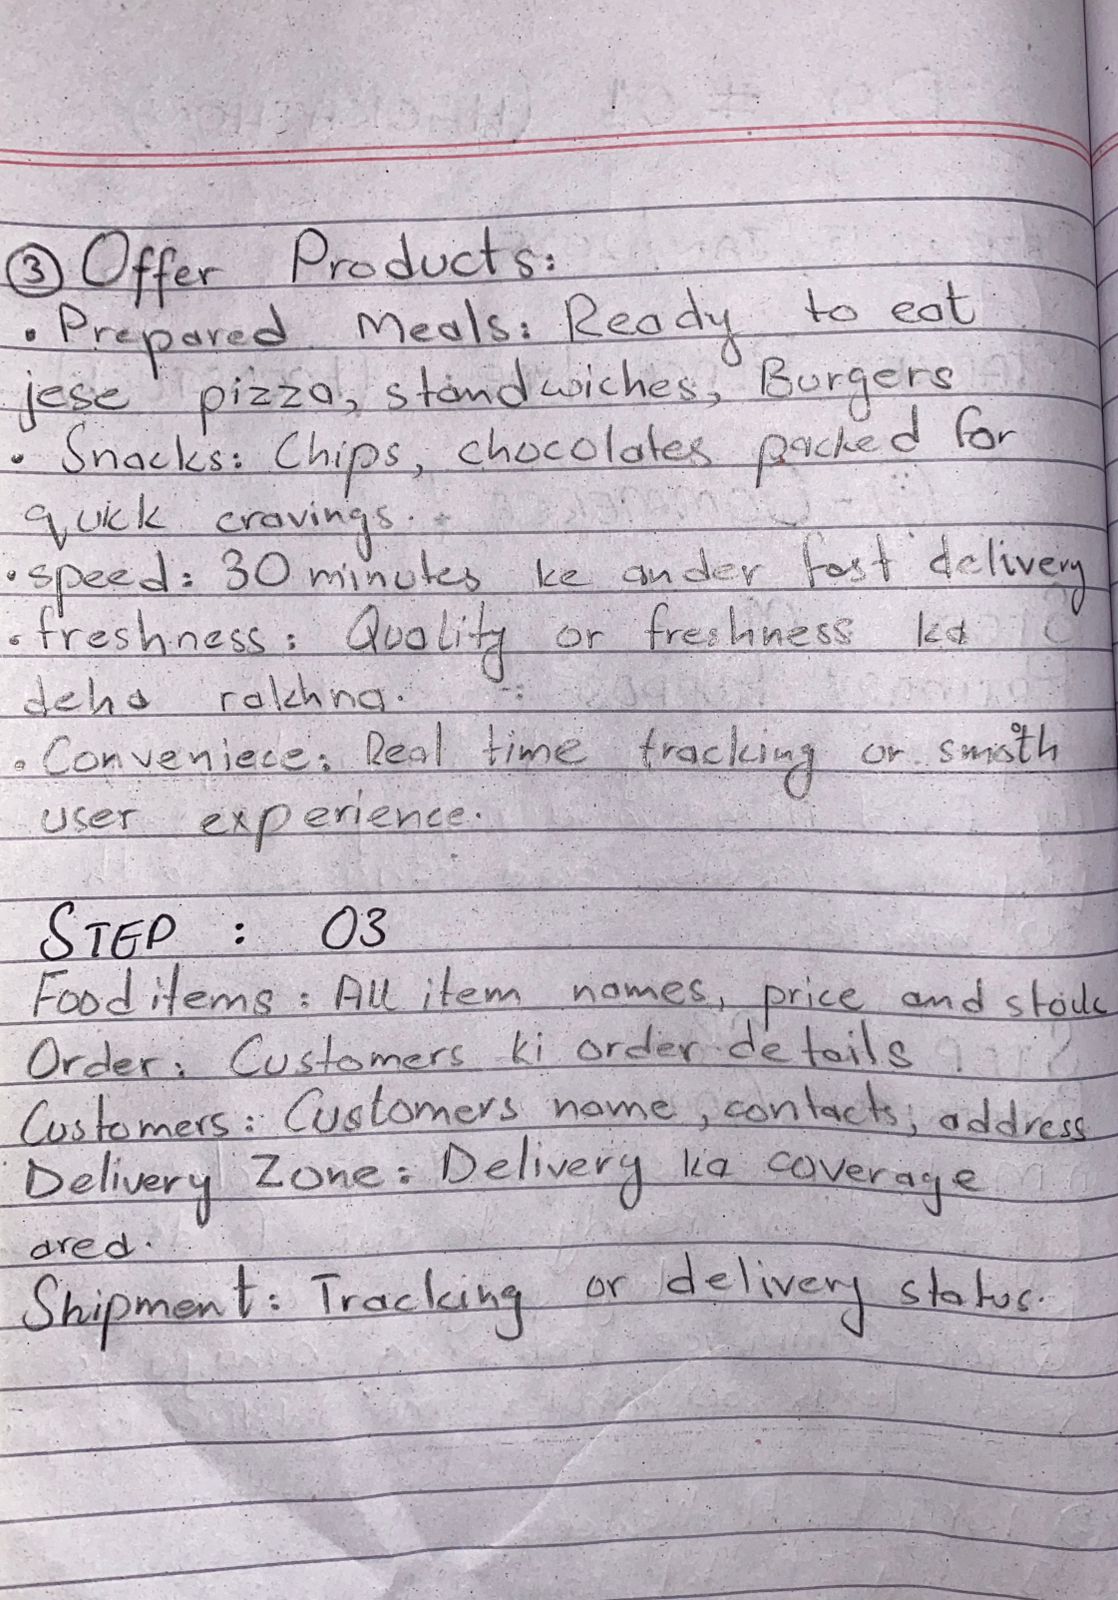 ③ Offer Products:
• Prepared Meals: Ready to eat
jese pizza, standwiches, Burgers
• Snacks: Chips, chocolates packed for
quick cravings.
• speed: 30 minutes ke ander fast delivery
• freshness: Quality or freshness ka
deha rakhna.
• Conveniece: Real time tracking or smooth
user experience.
STEP : 03
Food items: All item names, price and stock
Order: Customers ki order details
Customers: Customers name, contacts, address
Delivery Zone: Delivery ka coverage
area.
Shipment: Tracking or delivery status.